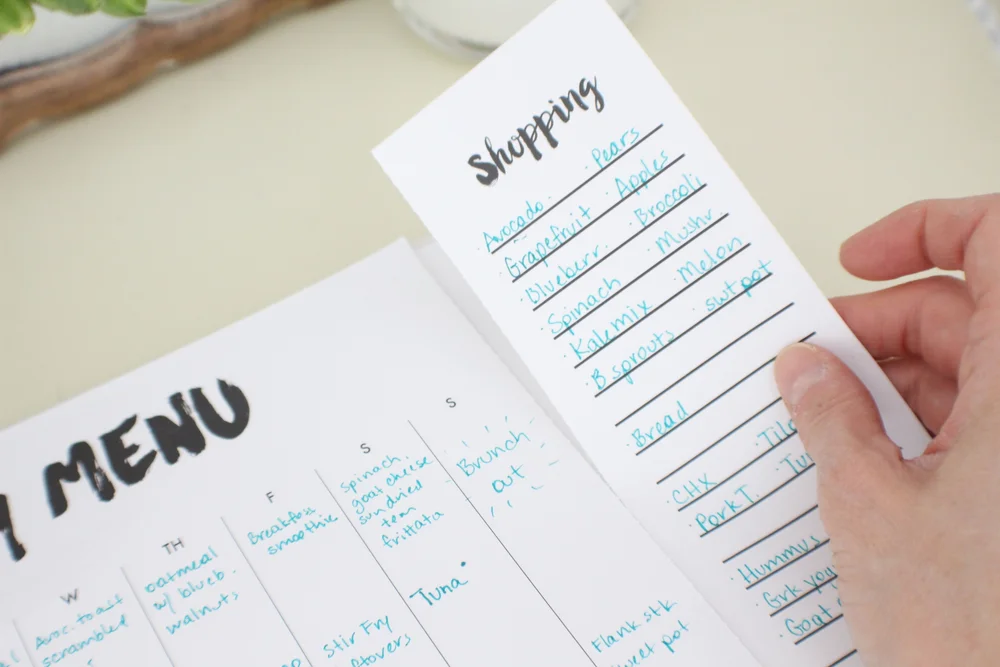 Shopping
Avocado · Pears
Grapefruit · Apples
Blueberr. · Broccoli
Spinach · Mushr
Kale mix · Melon
B. sprouts · swt pot
Bread
CHX
Pork T.
Hummus
Grk
Goat
MENU
W
TH
F
S
S
Avoc. toast
scrambled
oatmeal
w/ blueb.
walnuts
Breakfast
smoothie
spinach,
goat cheese
sundried
tom
frittata
Brunch
out
Tuna
Stir Fry
Flank stk